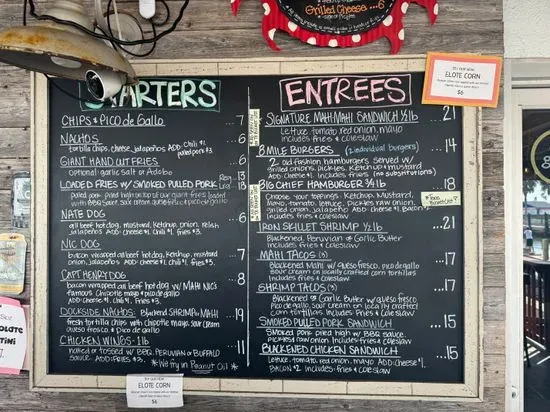 Grilled Cheese ...6
STARTERS
CHIPS & PICO de Gallo 7
NACHOS 6
tortilla chips, cheese, jalapeños ADD: Chili $1.
pulled pork $3.
GIANT HAND CUT FRIES 6
Optional garlic Salt or Adobo
LOADED FRIES w/ SMOKED PULLED PORK Reg 13
Lrg 18
NATE DOG 6
all beef hotdog, mustard, ketchup, onion, relish
Jalapeños ADD: Cheese $1. Chili $1. fries $3.
NIC DOG 7
bacon wrapped all beef hotdog, Ketchup, mustard
onion, jalapeños ADD: Cheese $1. Chili $1. Fries $3.
CAPT HENRY DOG 8
bacon wrapped all beef hotdog w/ MAHI NIC's
famous Chipotle mayo & pico de gallo
ADD: cheese $1. Chili $1. Fries $3.
DOCKSIDE NACHOS: Blackend SHRIMP & MAHI 19
fresh tortilla chips with chipotle mayo, sour cream
queso fresco & Pico de gallo
CHICKEN WINGS 1 lb 11
naked or tossed w/ BBQ, PERUVIAN or BUFFALO
SAUCE ADD: FRIES $3. *We fry in Peanut Oil*
ENTREES
SIGNATURE MAHI MAHI SANDWICH ½ lb 21
Lettuce, tomato, red onion, mayo
includes Fries & Coleslaw
8 MILE BURGERS (2 individual burgers) 14
2 old fashion hamburgers served w/
grilled onions, pickles, Ketchup & mustard
ADD Cheese $1. includes fries (no substitutions)
BIG CHIEF HAMBURGER ¾ lb 18
Choose your toppings: Ketchup, Mustard,
Mayo, tomato, lettuce, pickles, raw onion,
grilled onion, Jalapeño ADD: cheese $1. Bacon
includes fries & coleslaw
IRON SKILLET SHRIMP ½ lb 21
Blackened, Peruvian or Garlic Butter
includes fries & coleslaw
MAHI TACOS (3) 17
Blackened Mahi w/ queso fresco, pico de gallo
sour cream on locally crafted corn tortillas
includes fries & coleslaw
SHRIMP TACOS (3) 17
Blackened or Garlic Butter w/ queso fresco
pico de gallo, sour cream on locally crafted
corn tortillas. Includes: Fries & Coleslaw
SMOKED PULLED PORK SANDWICH 15
Smoked pork dried high w/ BBQ sauce,
pickles & raw onion Includes fries & coleslaw
BLACKENED CHICKEN SANDWICH 15
Lettuce, tomato, red onion, mayo ADD: cheese $1.
BACON $2. Includes fries & coleslaw
ELOTE CORN
$6
ELOTE CORN
$6